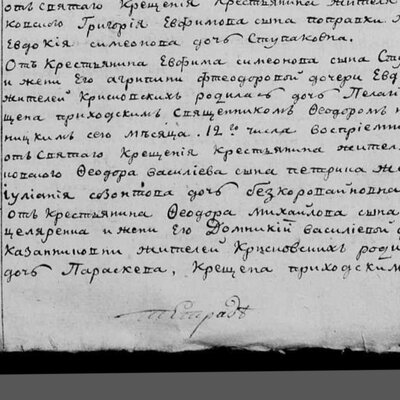 отъ святаго Крещенія Крестьянина жителя
ковского Григорія Евфимова сына поправки
Евдокія симеонова дочь Ступаковна.
Отъ Крестьянина Евфима симеонова сына Сту
и жени Его агрипини фтеодоровой дочери Евф
жителей Крисновскихъ родилась дочь Пелаг
щена приходскимъ Священникомъ Феодоромъ
ницкимъ сею мѣсяца. 12го числа воспріемни
отъ святаго Крещенія Крестьянина жител
новского Феодора василіева сына петарина Же
іуліанія созонтова дочь безкоровайновна
Отъ Крестьянина Феодора михайлова сына
целяренна и жени Его Домникій василіевой
Казаниновни жителей Крисновскихъ роди
дочь Параскева, Крещена приходским